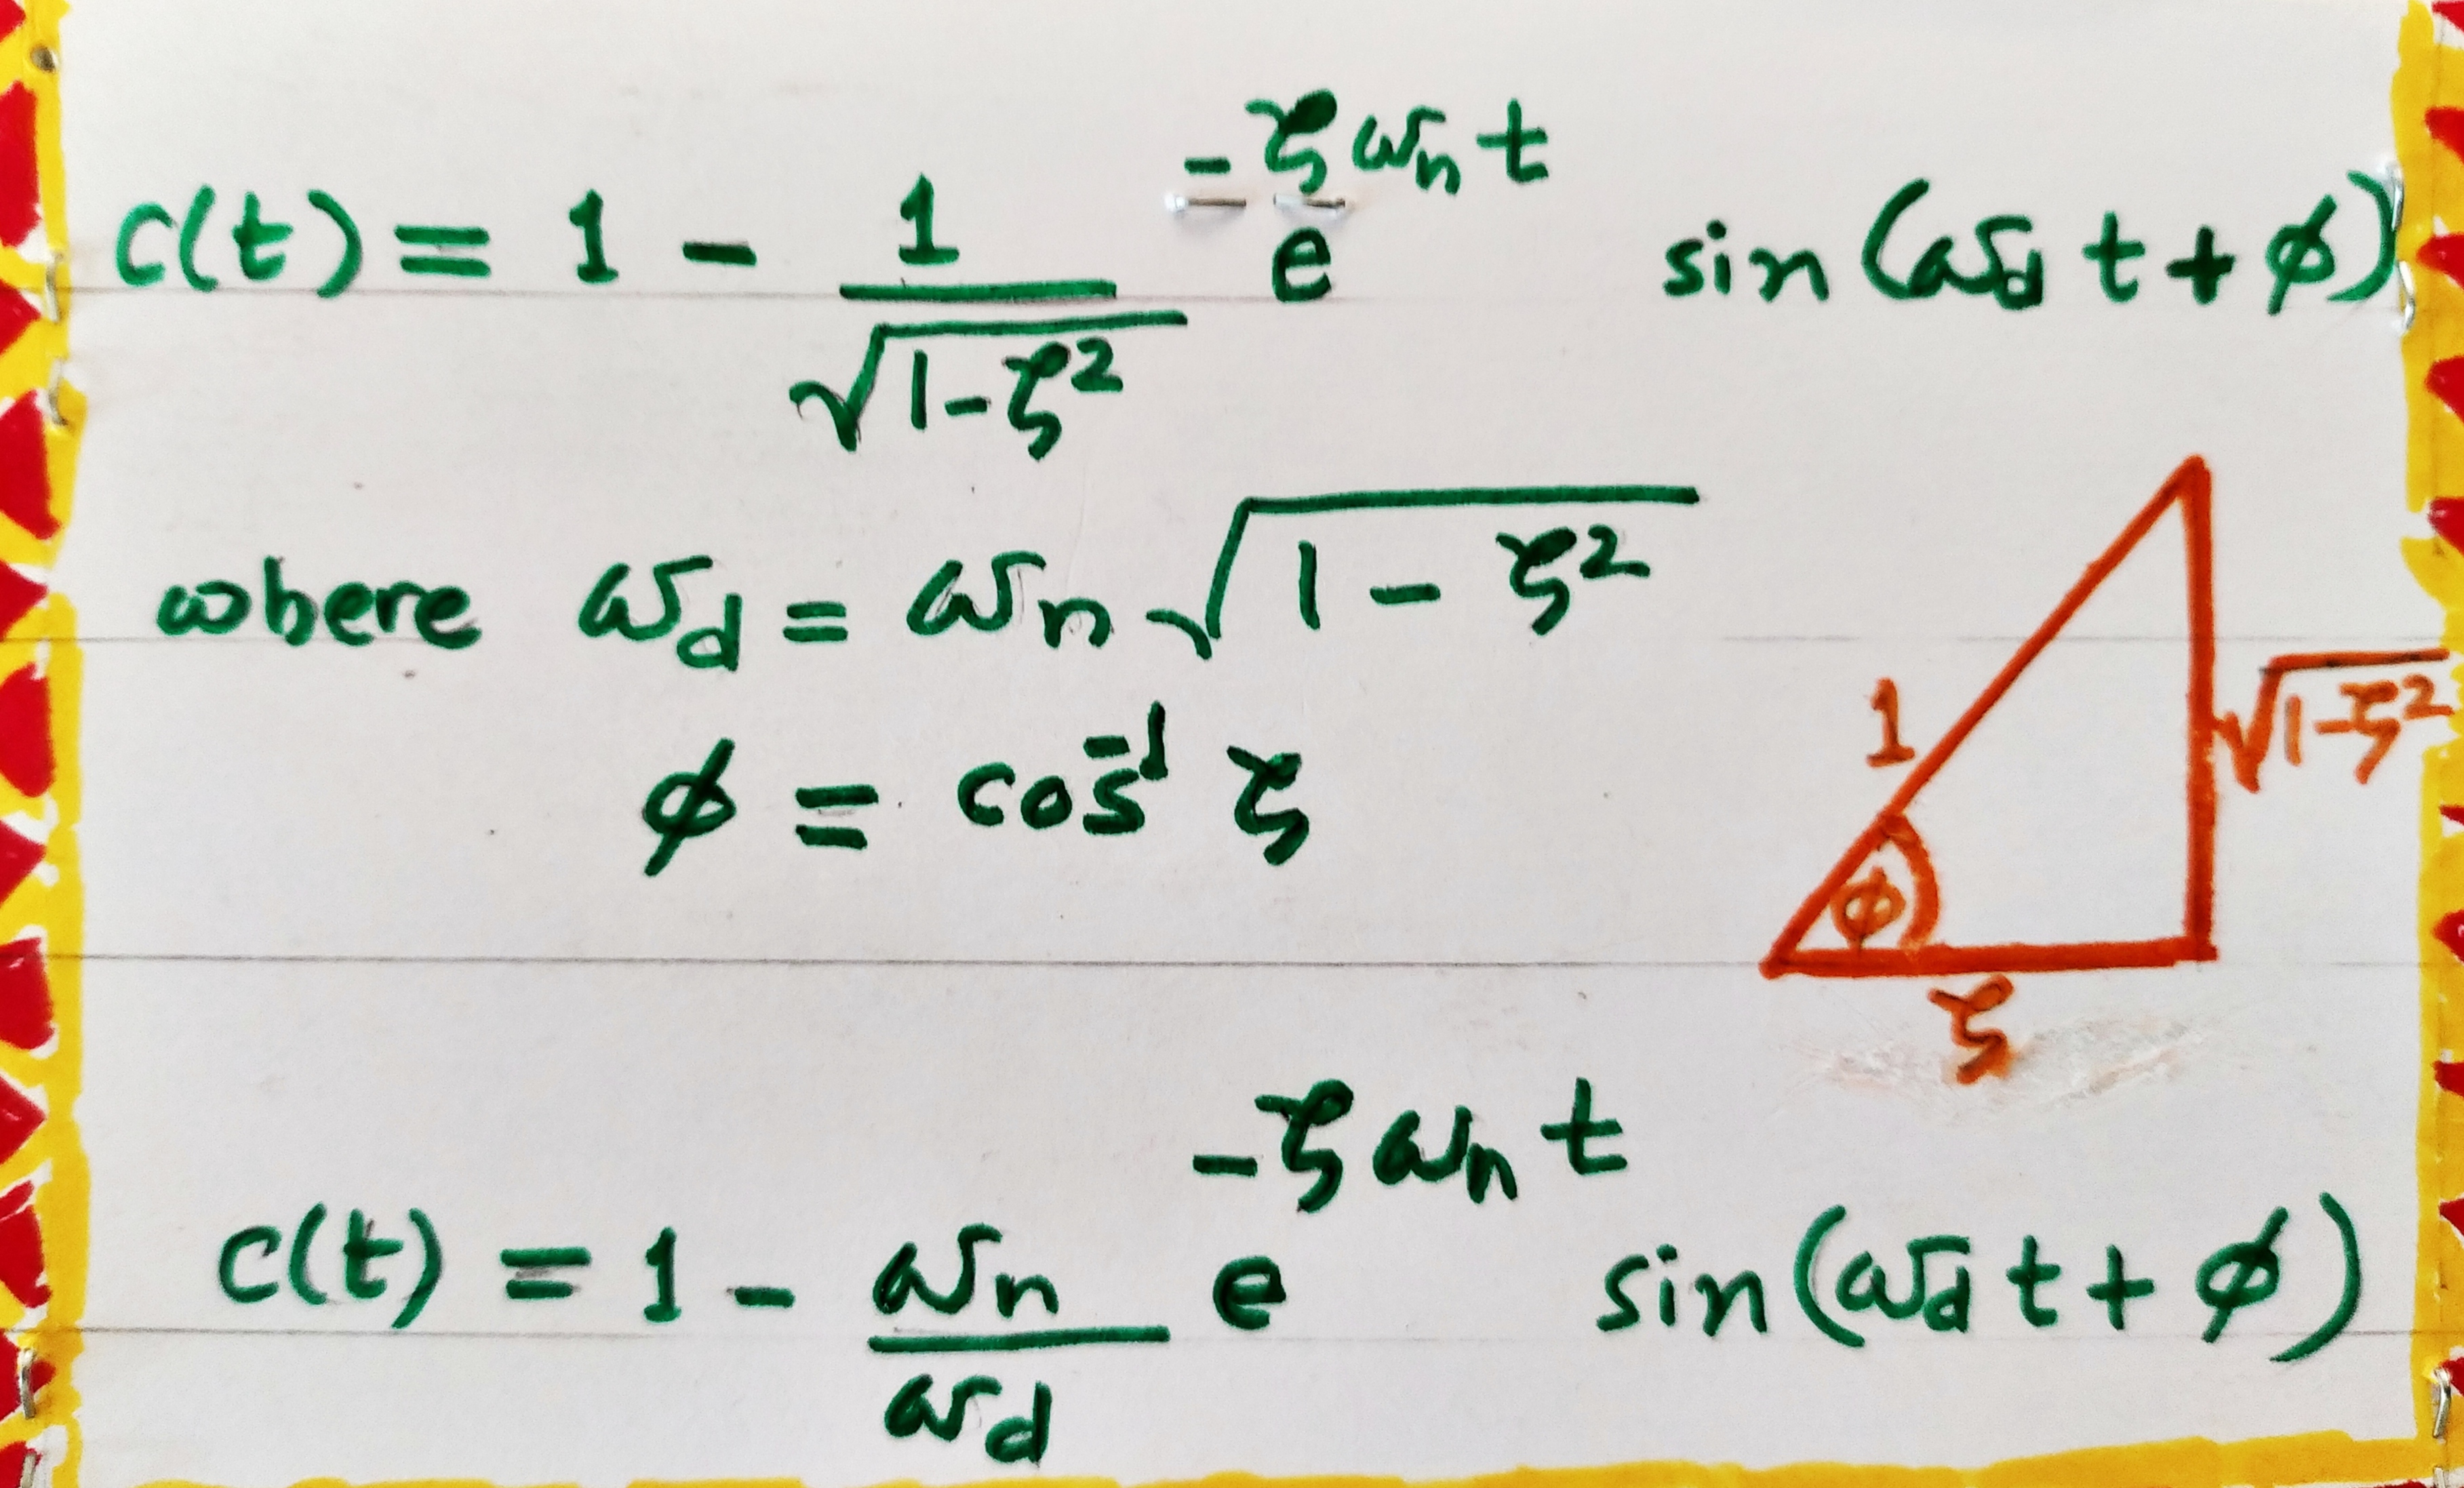 c(t) = 1 - 1/√(1-ζ²) e^(-ζωn t) sin(ωd t + φ)
where ωd = ωn √(1 - ζ²)
φ = cos⁻¹ ζ
1
√(1-ζ²)
φ
ζ
c(t) = 1 - ωn/ωd e^(-ζωn t) sin(ωd t + φ)